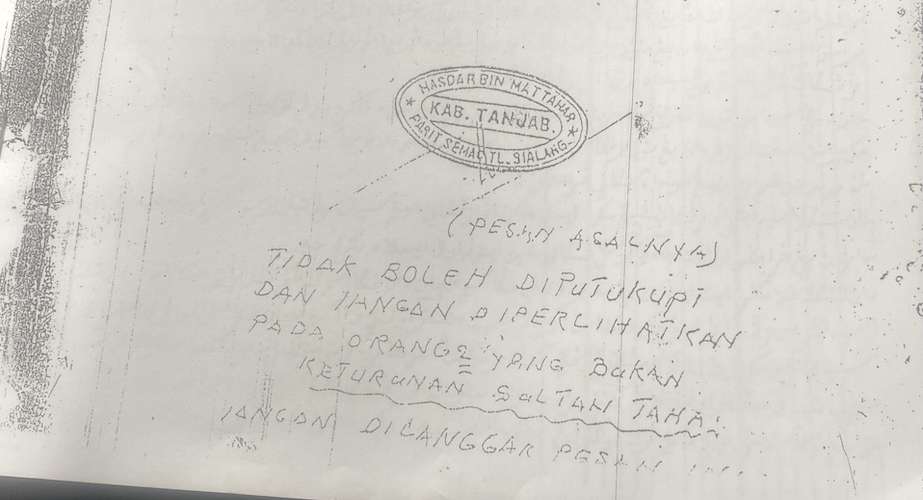 HASDAR BIN MATTAHAR
KAB. TANJAB.
PARIT SEMAU TL. SIALANG
(PESAN ASALNYA)
TIDAK BOLEH DIPUTUKUPI
DAN JANGAN DIPERLIHATKAN
PADA ORANG2 YANG BUKAN
KETURUNAN SULTAH TAHA.
JANGAN DILANGGAR PESAN